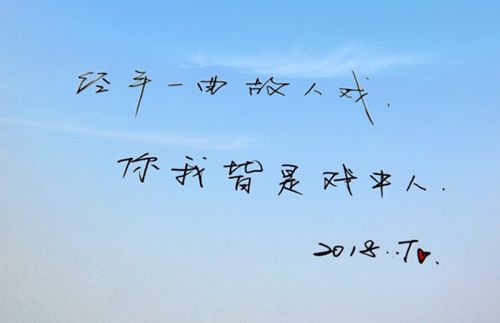 经年一曲故人戏.
你我皆是戏中人.
2018..T♥.